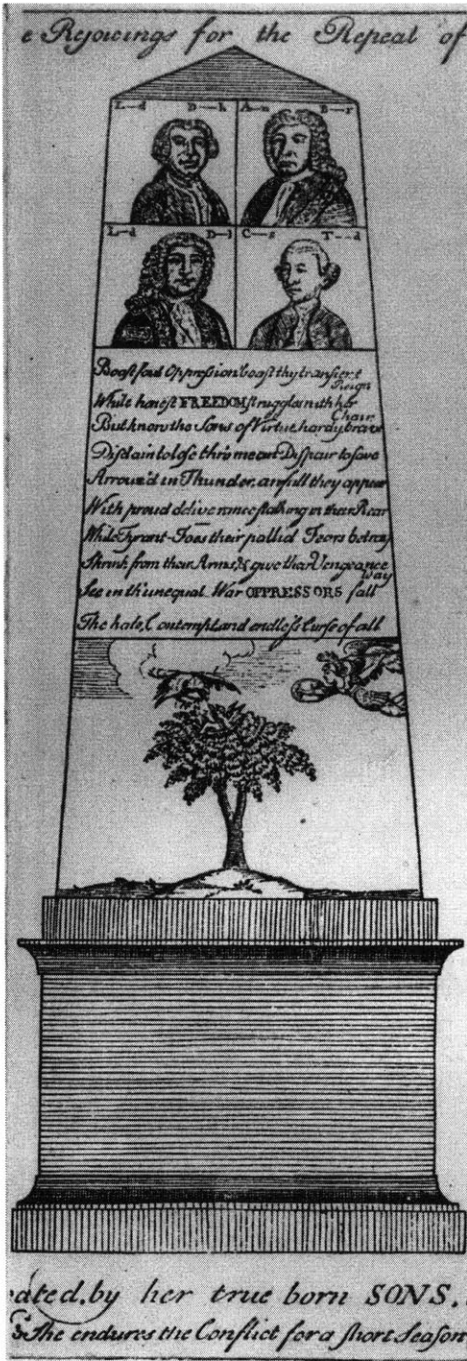 e Rejoicings for the Repeal of
L—d D—h A—n B—r
L—d D—l C—s T—d
Boast foul Oppression boast thy transient Reign
While honest FREEDOM struggles with her Chain
But know the Sons of Virtue hardy brave
Disdain to lose thro mean Dispair to save
Arrouz'd in Thunder, awfull they appear
With proud deliverance stalking in their Rear
While Tyrant-Foes their pallid Fears betray
Shrink from their Arms, & give their Vengeance way
See in th' unequal War OPPRESSORS fall
The hate, Contempt, and endless Curse of all
ated, by her true born SONS,
She endures the Conflict for a short Season